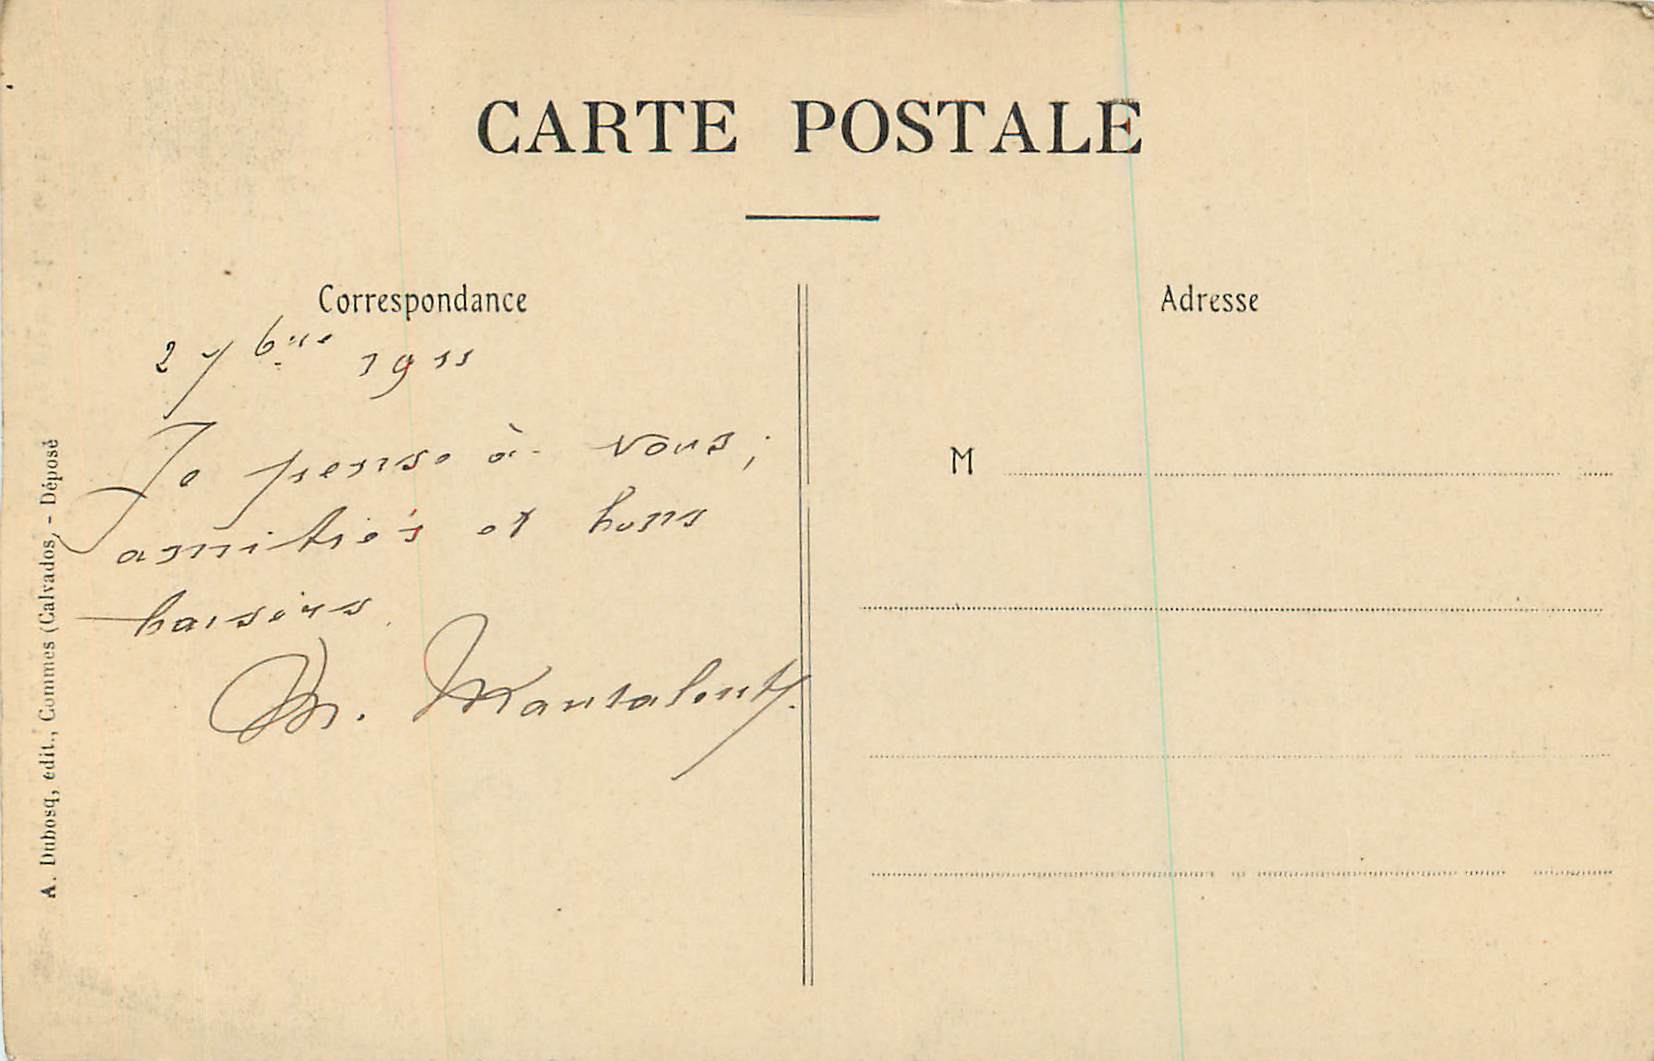 CARTE POSTALE
Correspondance
2 7bre 1911
Je pense à vous,
amitiés et bons
baisers.
M.
Adresse
M
A. Dubosq, édit., Commes (Calvados) - Déposé